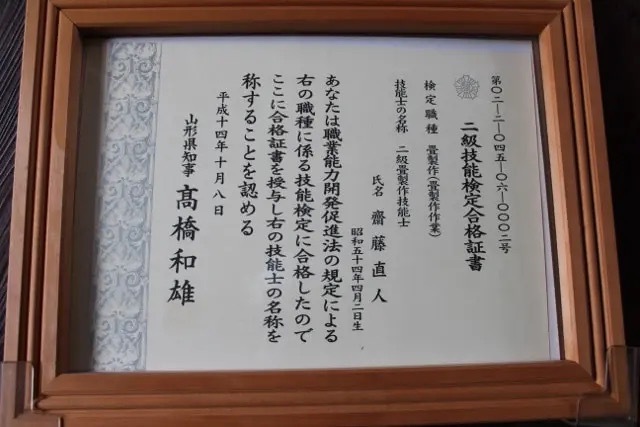 第〇二―二―〇四五―〇六―〇〇〇二号
二級技能検定合格証書
検定職種 畳製作(畳製作作業)
技能士の名称 二級畳製作技能士
氏名 齋藤直人
昭和五十四年四月二日生
あなたは職業能力開発促進法の規定による
右の職種に係る技能検定に合格したので
ここに合格証書を授与し右の技能士の名称を
称することを認める
平成十四年十月八日
山形県知事 髙橋和雄